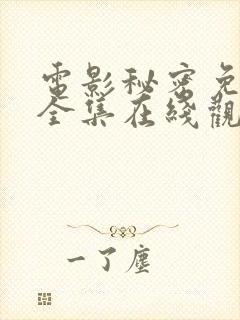 電影秘密免
全集在綫觀
一了塵